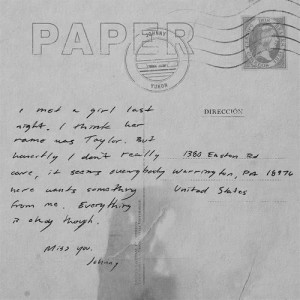 PAPER
I met a girl last
night. I think her
name was Taylor. But
honestly I don't really
care, it seems everybody
here wants something
from me. Everything
is okay though.
Miss you.
Johnny
DIRECCIÓN
1380 Easton Rd
Warrington, PA 18976
United States